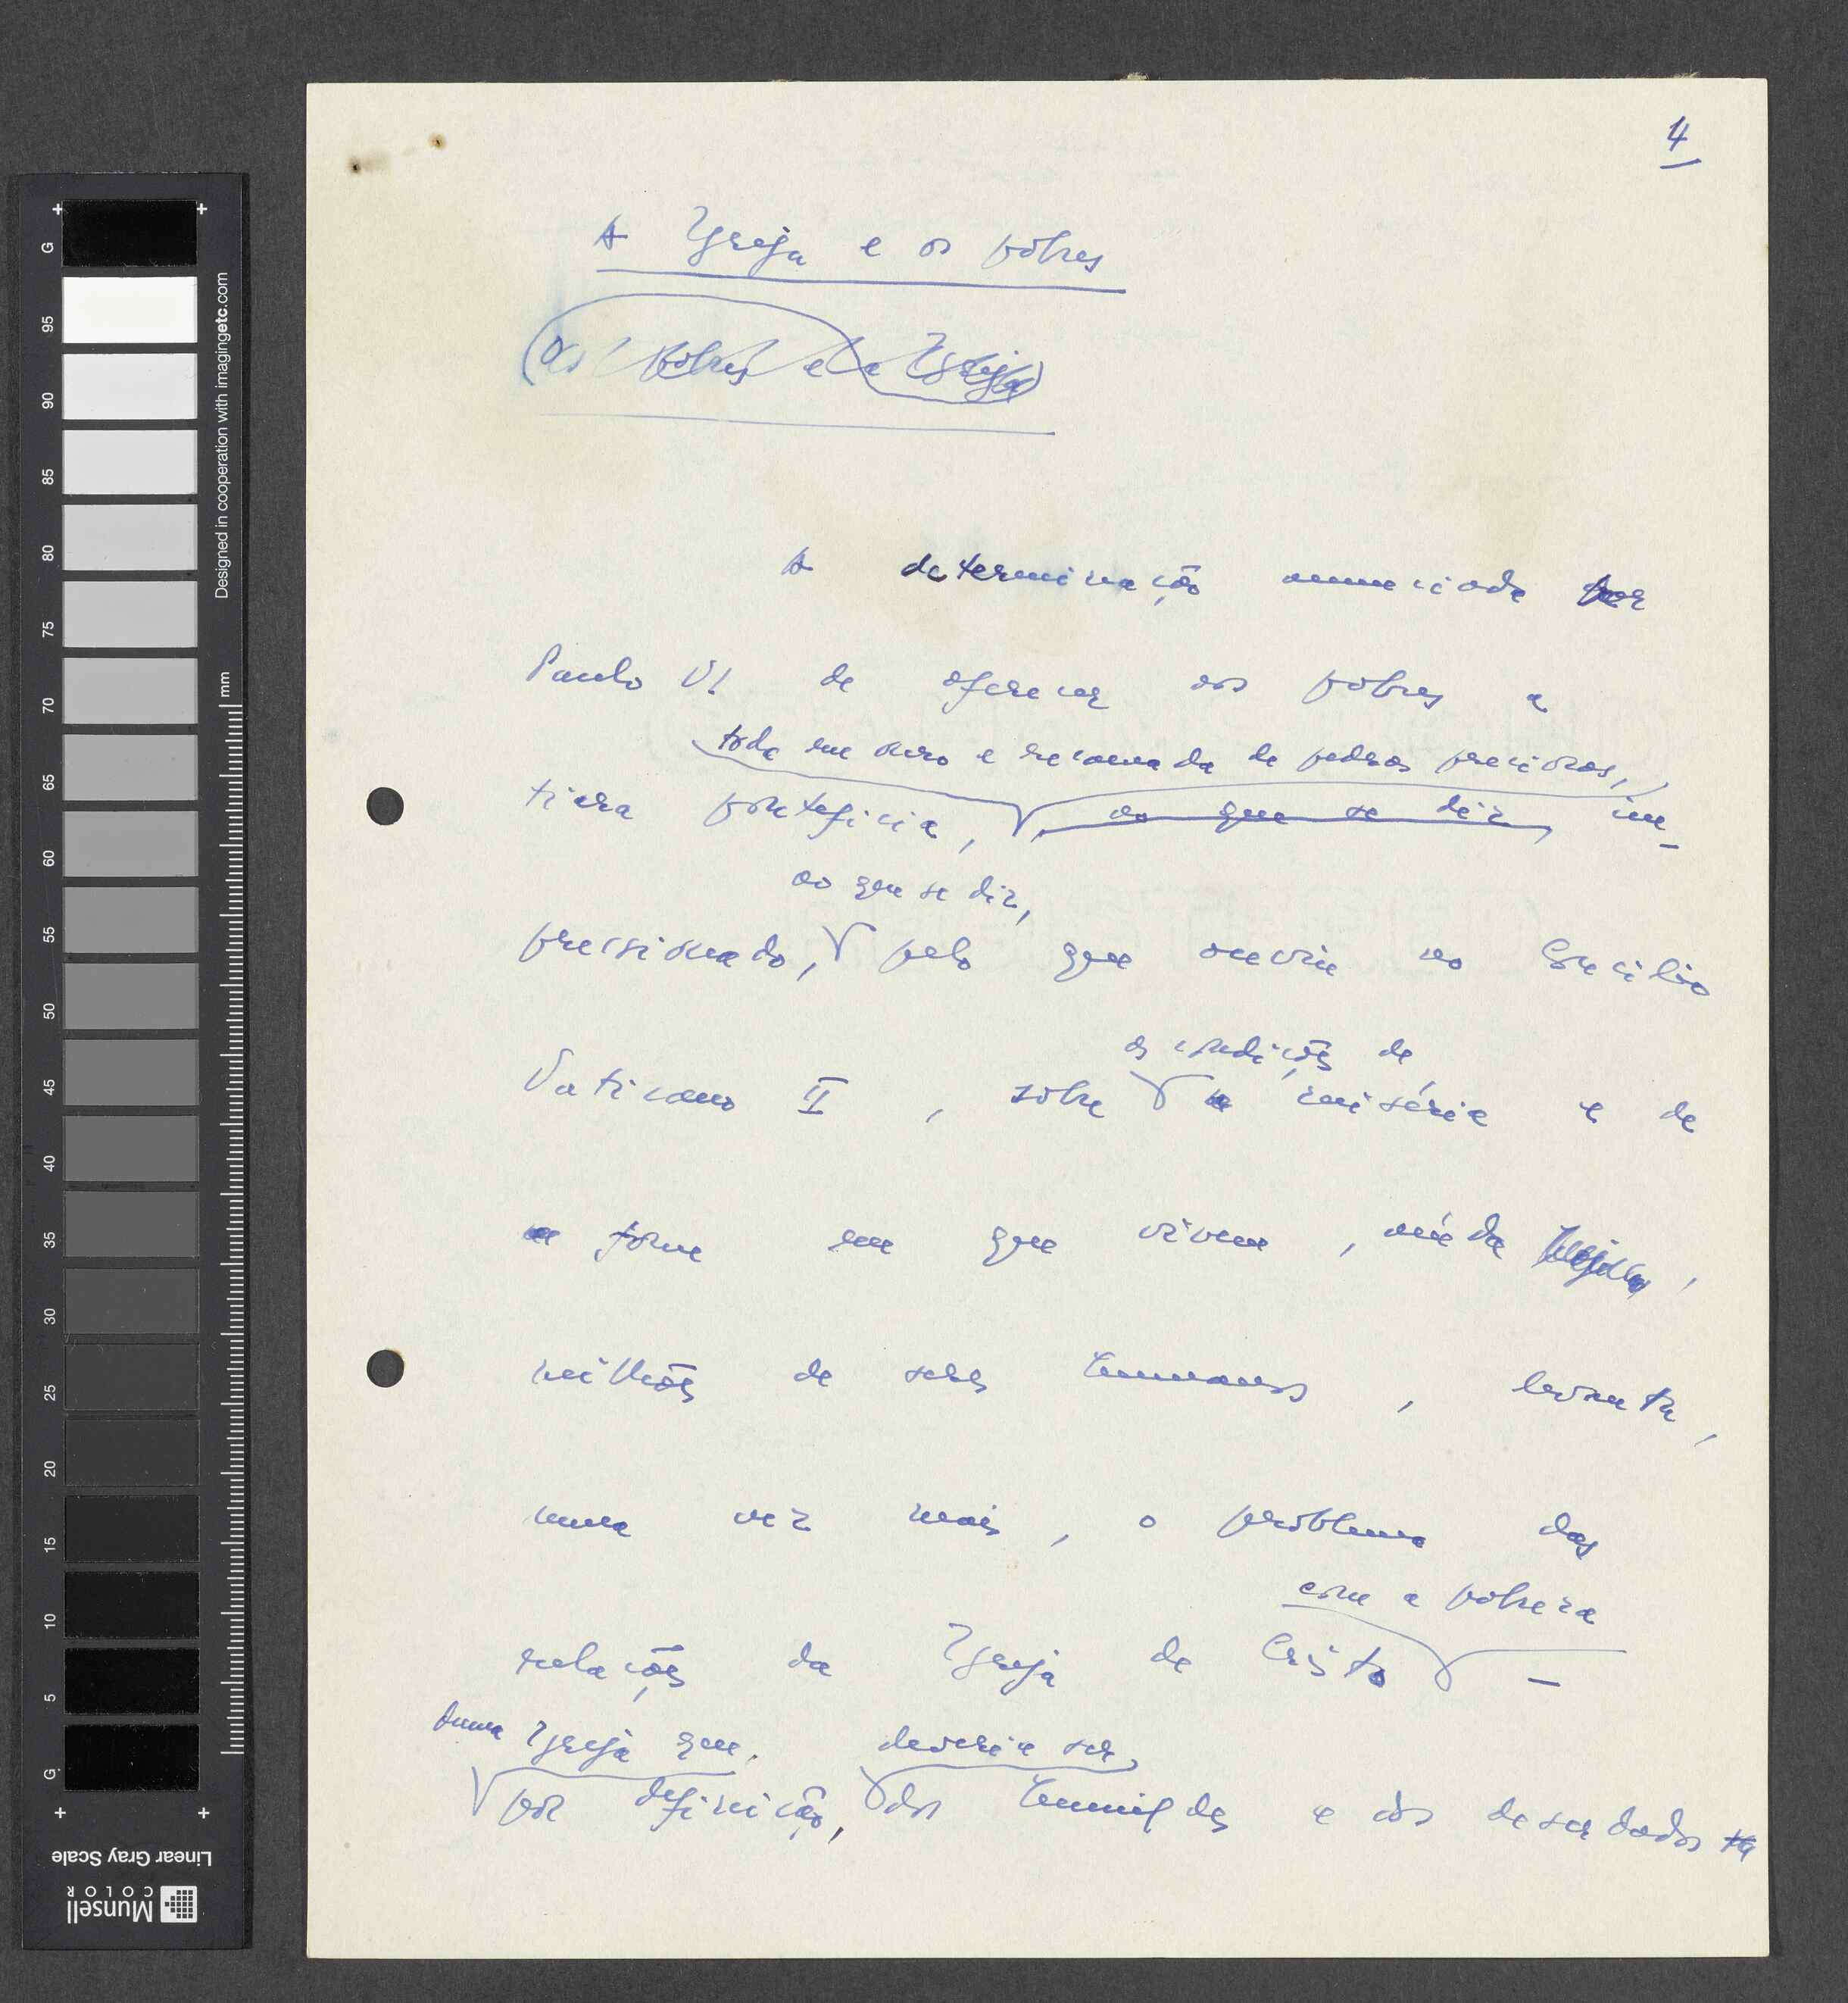 4
A Igreja e os pobres
(Os pobres e a Igreja)
A determinação anunciada por
Paulo VI de oferecer aos pobres a
toda em ouro e recamada de pedras preciosas,
tiara pontifícia, ao que se diz, im-
ao que se diz,
pressionado, pelo que ouviu no Concílio
as condições de
Vaticano II, sôbre a miséria e de
a fome em que vivem, ainda hoje,
milhões de seres humanos, levanta,
uma vez mais, o problema das
com a pobreza
relações da Igreja de Cristo -
duma Igreja que, deveria ser,
por definição, dos humildes e dos deserdados
G 95 90 85 80 75 70 65 60 55 50 45 40 35 30 25 20 15 10 5 G
mm
Designed in cooperation with imagingetc.com
Linear Gray Scale
Munsell
COLOR